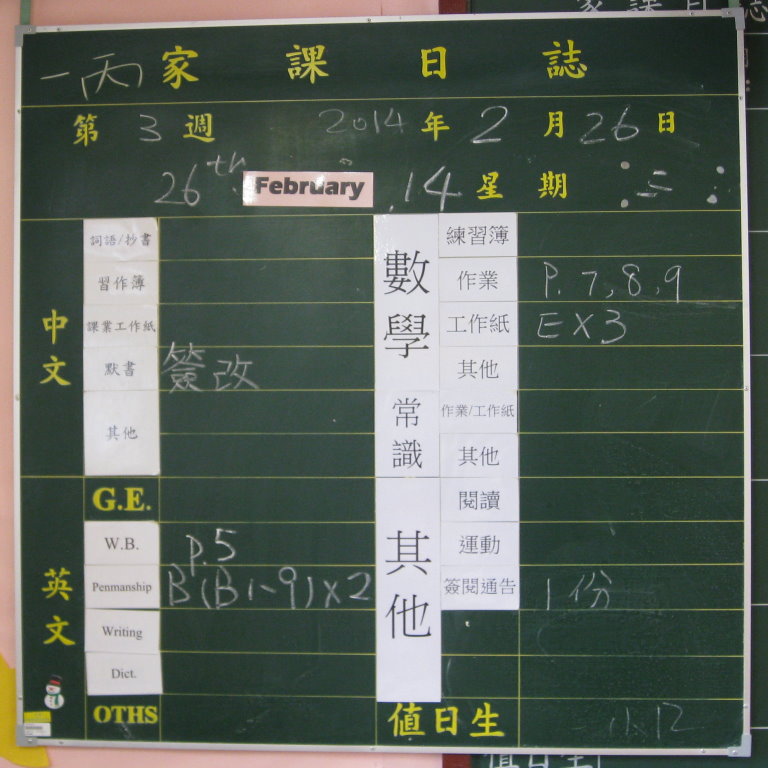 一丙 家課日誌
第 3 週 2014 年 2 月 26 日
26th February 14 星期 三
中文
詞語/抄書
習作簿
課業工作紙
默書 簽改
其他
英文
G.E.
W.B. P.5
Penmanship B(B1~9)x2
Writing
Dict.
OTHS
數學
練習簿
作業 P.7,8,9
工作紙 EX3
其他
常識
作業/工作紙
其他
其他
閱讀
運動
簽閱通告 1份
值日生 11,12
家課日誌
值日生